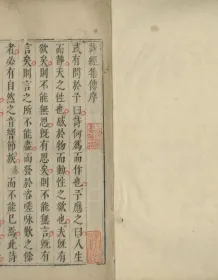 詩經集傳序
或有問於予曰詩何爲而作也予應之曰人生
而靜天之性也感於物而動性之欲也夫旣有
欲矣則不能無思旣有思矣則不能無言旣有
言矣則言之所不能盡而發於咨嗟咏歎之餘
者必有自然之音響節族而不能已焉此詩